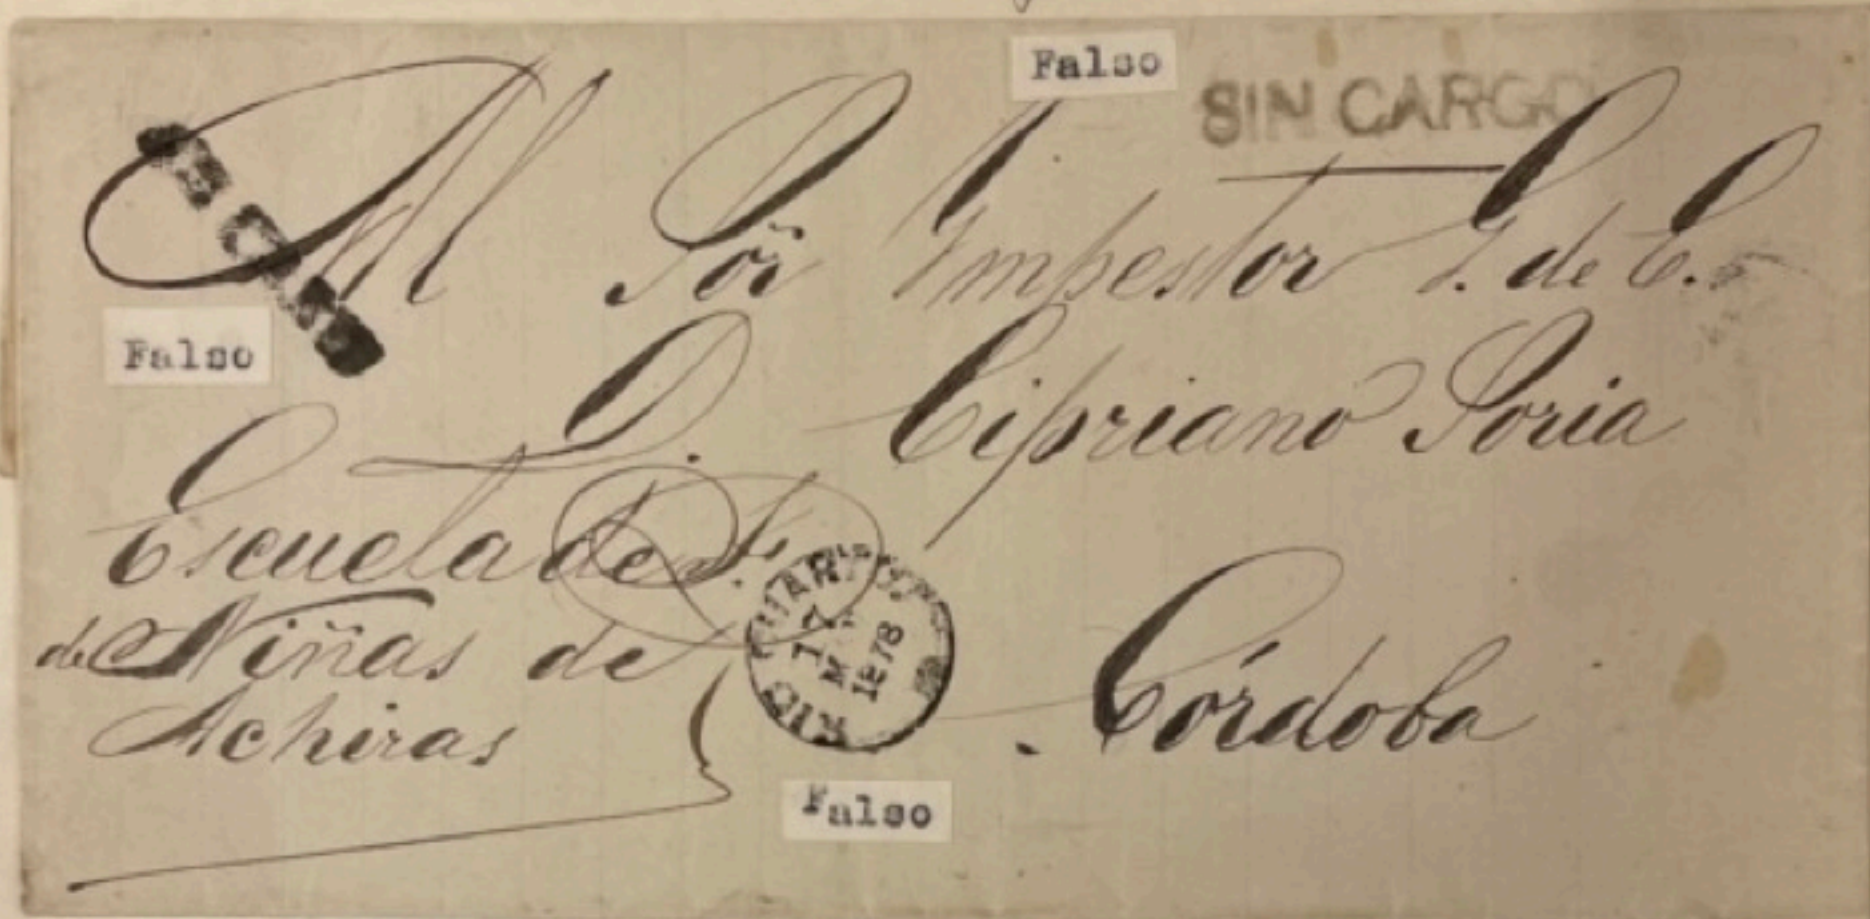 Falso
SIN CARGO
Al Sōr Impestor G. de E.
Falso
D. Cipriano Soria
Escuela de
de Niñas de
Achiras
RIO CUARTO
17
M
1878
Córdoba
Falso